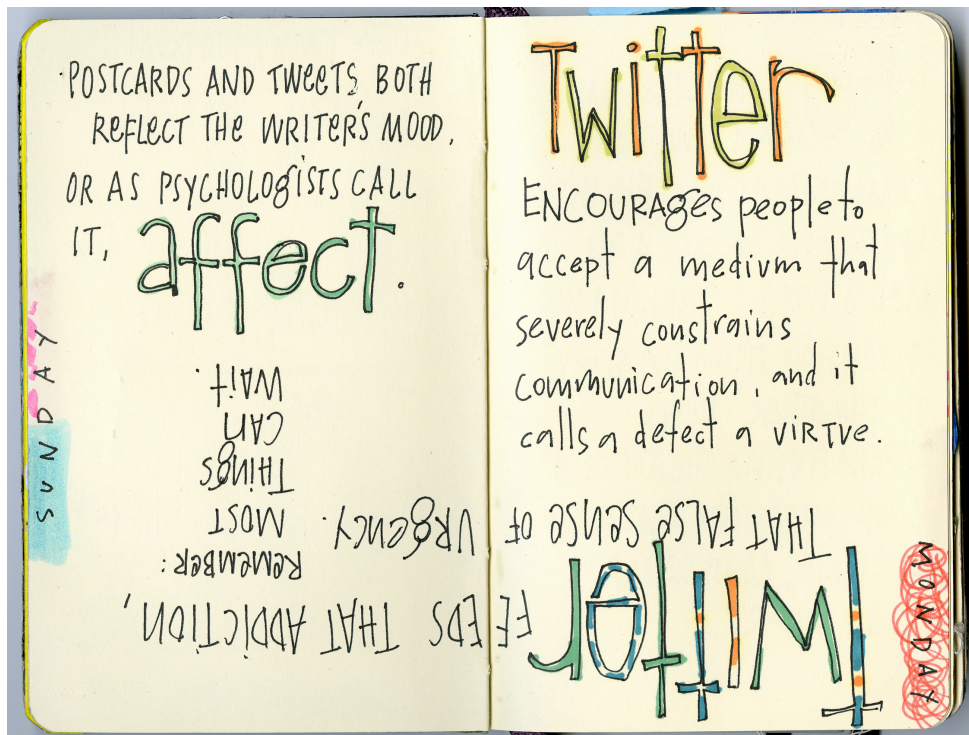 POSTCARDS AND TWEETS, BOTH
REFLECT THE WRITER'S MOOD,
OR AS PSYCHOLOGISTS CALL
IT, affect.
SUNDAY
Twitter
ENCOURAGES people to
accept a medium that
severely constrains
communication, and it
calls a defect a VIRTUE.
MONDAY
Twitter FEEDS THAT ADDICTION,
THAT FALSE SENSE OF URGENCY.
REMEMBER:
MOST
THINGS
CAN
WAIT.